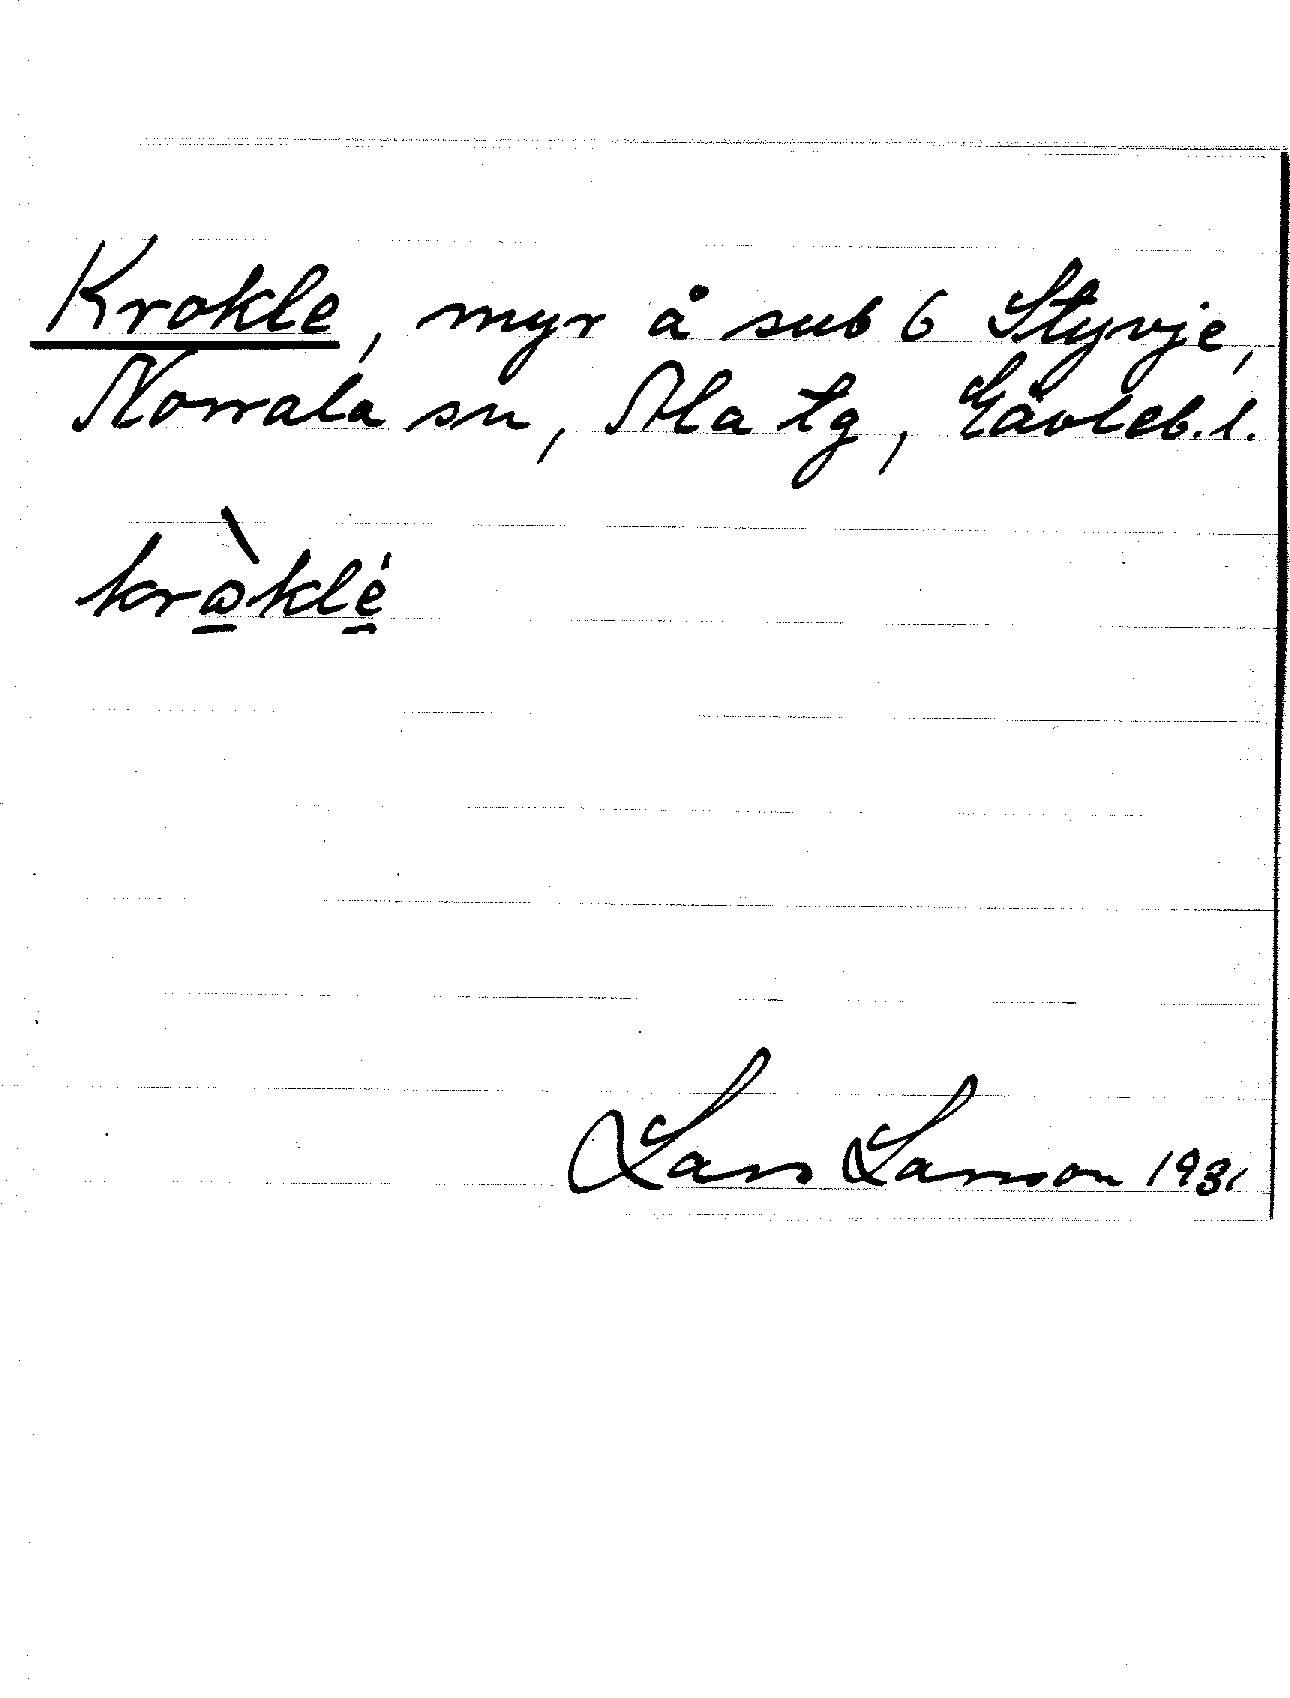 Krokle, myr å sub 6 Styvje,
Norrala sn, Ala tg, Gävleb. l.
kròklé
Lars Larsson 1931